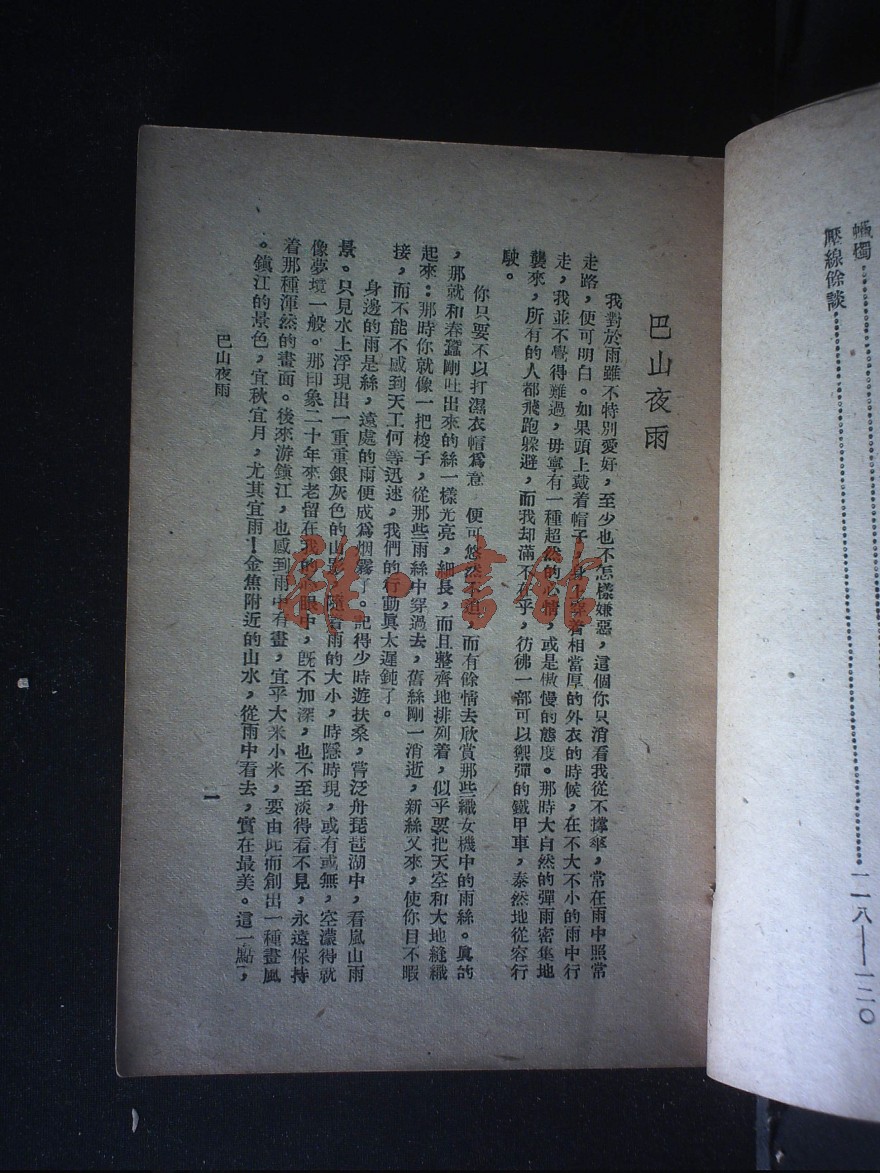 蠟燭……………………
壓線餘談……………………一一八——一二〇
巴山夜雨
我對於雨雖不特別愛好,至少也不怎樣嫌惡,這個你只消看我從不撐傘,常在雨中照常
走路,便可明白。如果頭上戴着帽子,身上穿着相當厚的外衣的時候,在不大不小的雨中行
走,我並不覺得難過,毋寧有一種超然的心情,或是傲慢的態度。那時大自然的彈雨密集地
襲來,所有的人都飛跑躲避,而我却滿不在乎,彷彿一部可以禦彈的鐵甲車,泰然地從容行
駛。
你只要不以打濕衣帽爲意 便可悠然不迫,而有餘情去欣賞那些織女機中的雨絲。眞的
,那就和春蠶剛吐出來的絲一樣光亮,細長,而且整齊地排列着,似乎要把天空和大地縫織
起來:那時你就像一把梭子,從那些雨絲中穿過去,舊絲剛一消逝,新絲又來,使你目不暇
接,而不能不感到天工何等迅速,我們的行動眞太遲鈍了。
身邊的雨是絲,遠處的雨便成爲烟霧了。記得少時遊扶桑,嘗泛舟琵琶湖中,看嵐山雨
景。只見水上浮現出一重重銀灰色的山影,隨着雨的大小,時隱時現,或有或無,空濃得就
像夢境一般。那印象二十年來老留在我的心眼中,旣不加深,也不至淡得看不見,永遠保持
着那種渾然的畫面。後來游鎭江,也感到雨中有畫,宜乎大米小米,要由此而創出一種畫風
。鎭江的景色,宜秋宜月,尤其宜雨!金焦附近的山水,從雨中看去,實在最美。這一點,
巴山夜雨
一
雜·書館